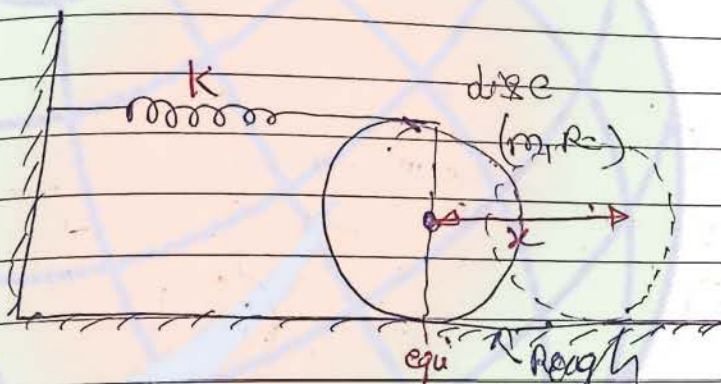 K
disc
(m, R)
x
equi
Rough